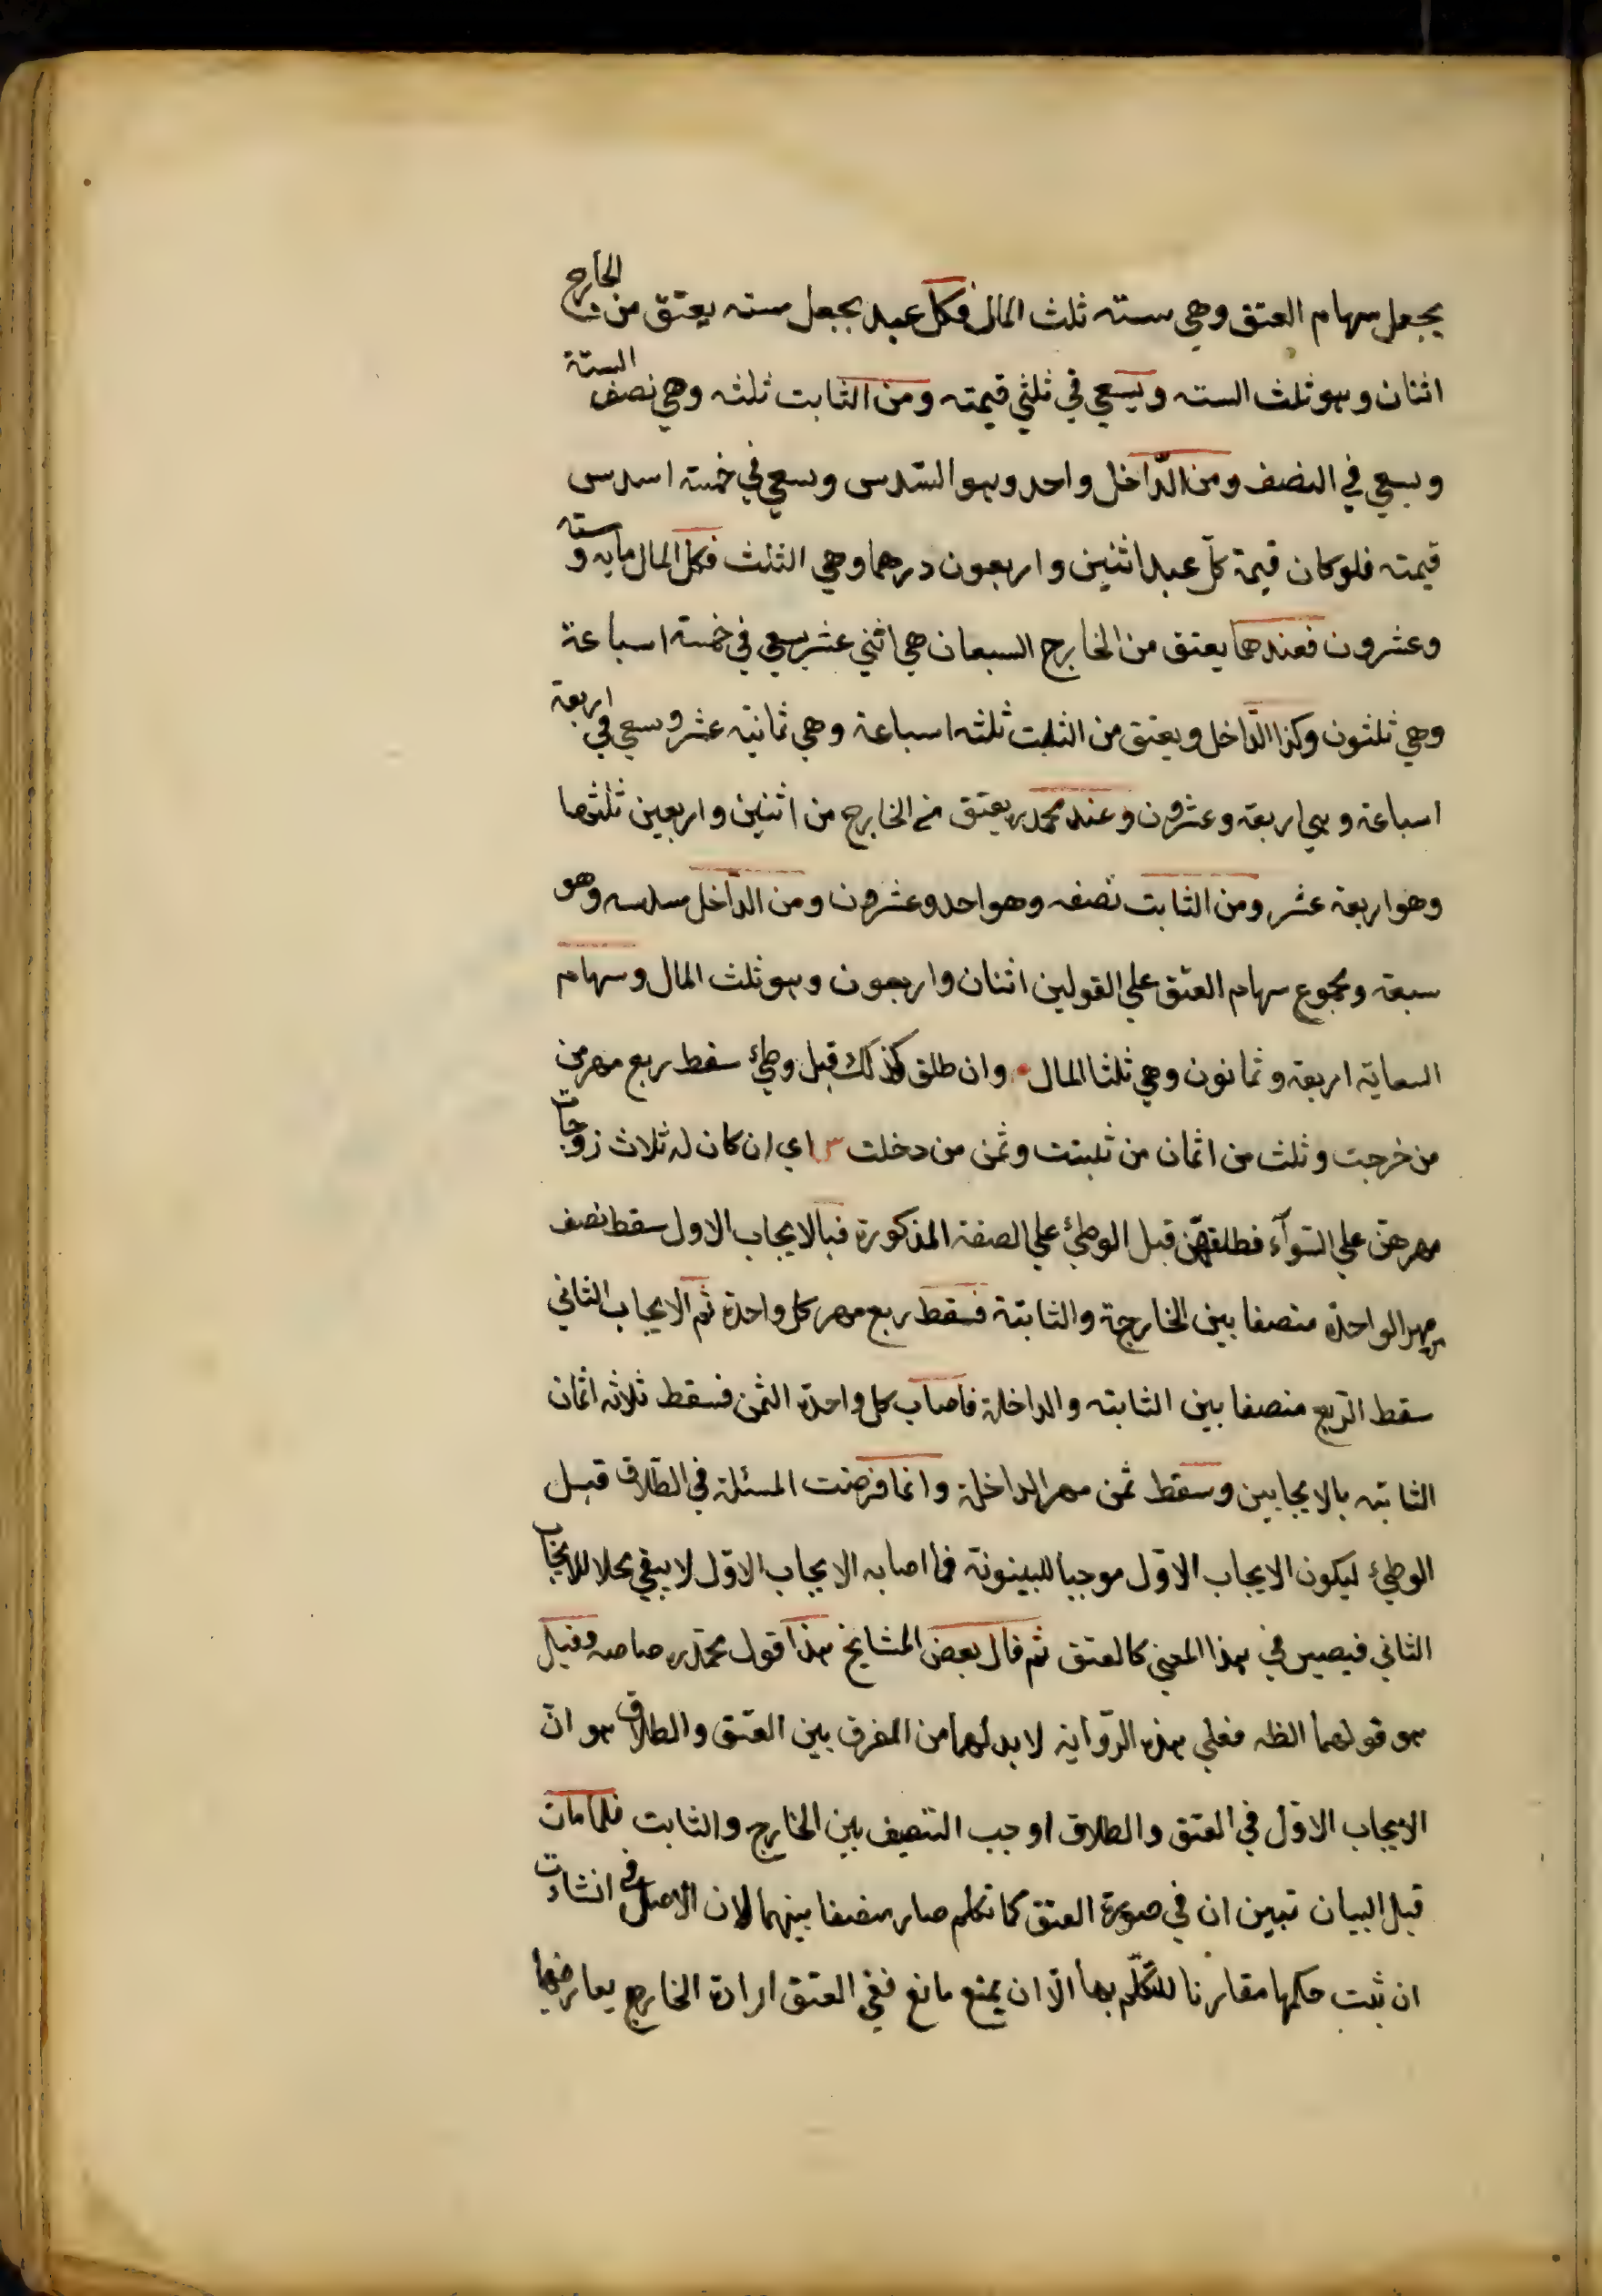 يجعل سهام العتق وهي سته ثلث المال فكل عبد يجعل سته يعتق من الخارج
اثنان وهو ثلث السته ويسعي في ثلثي قيمته ومن الثابت ثلثه وهي نصف الستة
ويسعي في النصف ومن الدّاخل واحد وهو السّدس وسعي في خمسة اسدس
قيمته فلو كان قيمة كلّ عبد اثنين واربعون درهما وهي الثلث فكل المال مايه وسته
وعشرون فعندهما يعتق من الخارج السبعان هي اثني عشر يسعي في خمسة اسباعة
وهي ثلثون وكذا الدّاخل ويعتق من الثابت ثلثه اسباعة وهي ثمانيه عشر وسعي في اربعة
اسباعة وهي اربعة وعشرون وعند محمد ر يعتق من الخارج من اثنين واربعين ثلثها
وهو اربعة عشر ومن الثابت نصفه وهو احد وعشرون ومن الدّاخل سدسه وهو
سبعة ومجموع سهام العتق علي القولين اثنان واربعون وهو ثلث المال وسهام
السعاية اربعة وثمانون وهي ثلثا المال وان طلق كذلك قبل وطئ سقط ربع مهر من
من خرجت وثلث من اثمان من ثلبتت وثمن من دخلت اي ان كان له ثلاث زوجات
مهرهنّ علي السّوآء فطلقهّن قبل الوطئ علي الصفة المذكورة فبالايجاب الاول سقط نصف
مهر الواحدة منصفا بين الخارجة والثابتة فسقط ربع مهر كل واحدة ثم الايجاب الثاني
سقط الرّبع منصفا بين الثابته والداخلة فاصاب كل واحدة الثمن فسقط ثلاثه اثمان
الثابته بالايجابين وسقط ثمن مهر الداخلة وانما فرضت المسئلة في الطّلاق قبل
الوطئ ليكون الايجاب الاوّل موجبا للبينونة فما اصابه الايجاب الاوّل لا يبقي محلا للايجاب
الثاني فيصير في هذا المعني كالعتق ثم قال بعض المشايخ هذا قول محمّد ر خاصه وقيل
هو قولهما الظه فعلي هذه الرّواية لا بد لهما من الفرق بين العتق والطلاق هو انّ
الايجاب الاوّل في العتق والطلاق اوجب التنصيف بين الخارج والثابت فلما مات
قبل البيان تبين ان في صورة العتق كما تكلم صار منصفا بينهما لان الاصل في انشاءت
ان ثبت حكمها مقارنا للتكلّم بها الّا ان يمنع مانع ففي العتق ارادة الخارج يعارضها